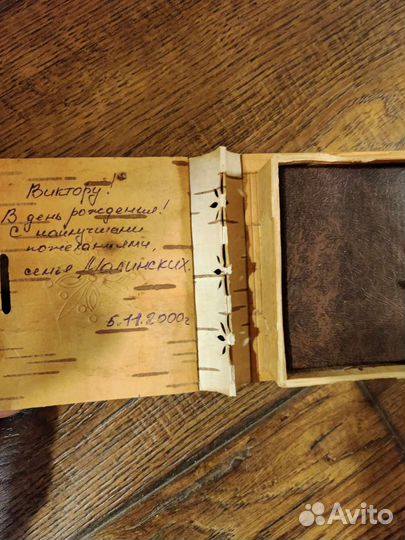 Виктору!
В день рождения!
С наилучшими
пожеланиями,
семья Малинских.
5.11.2000г
Avito